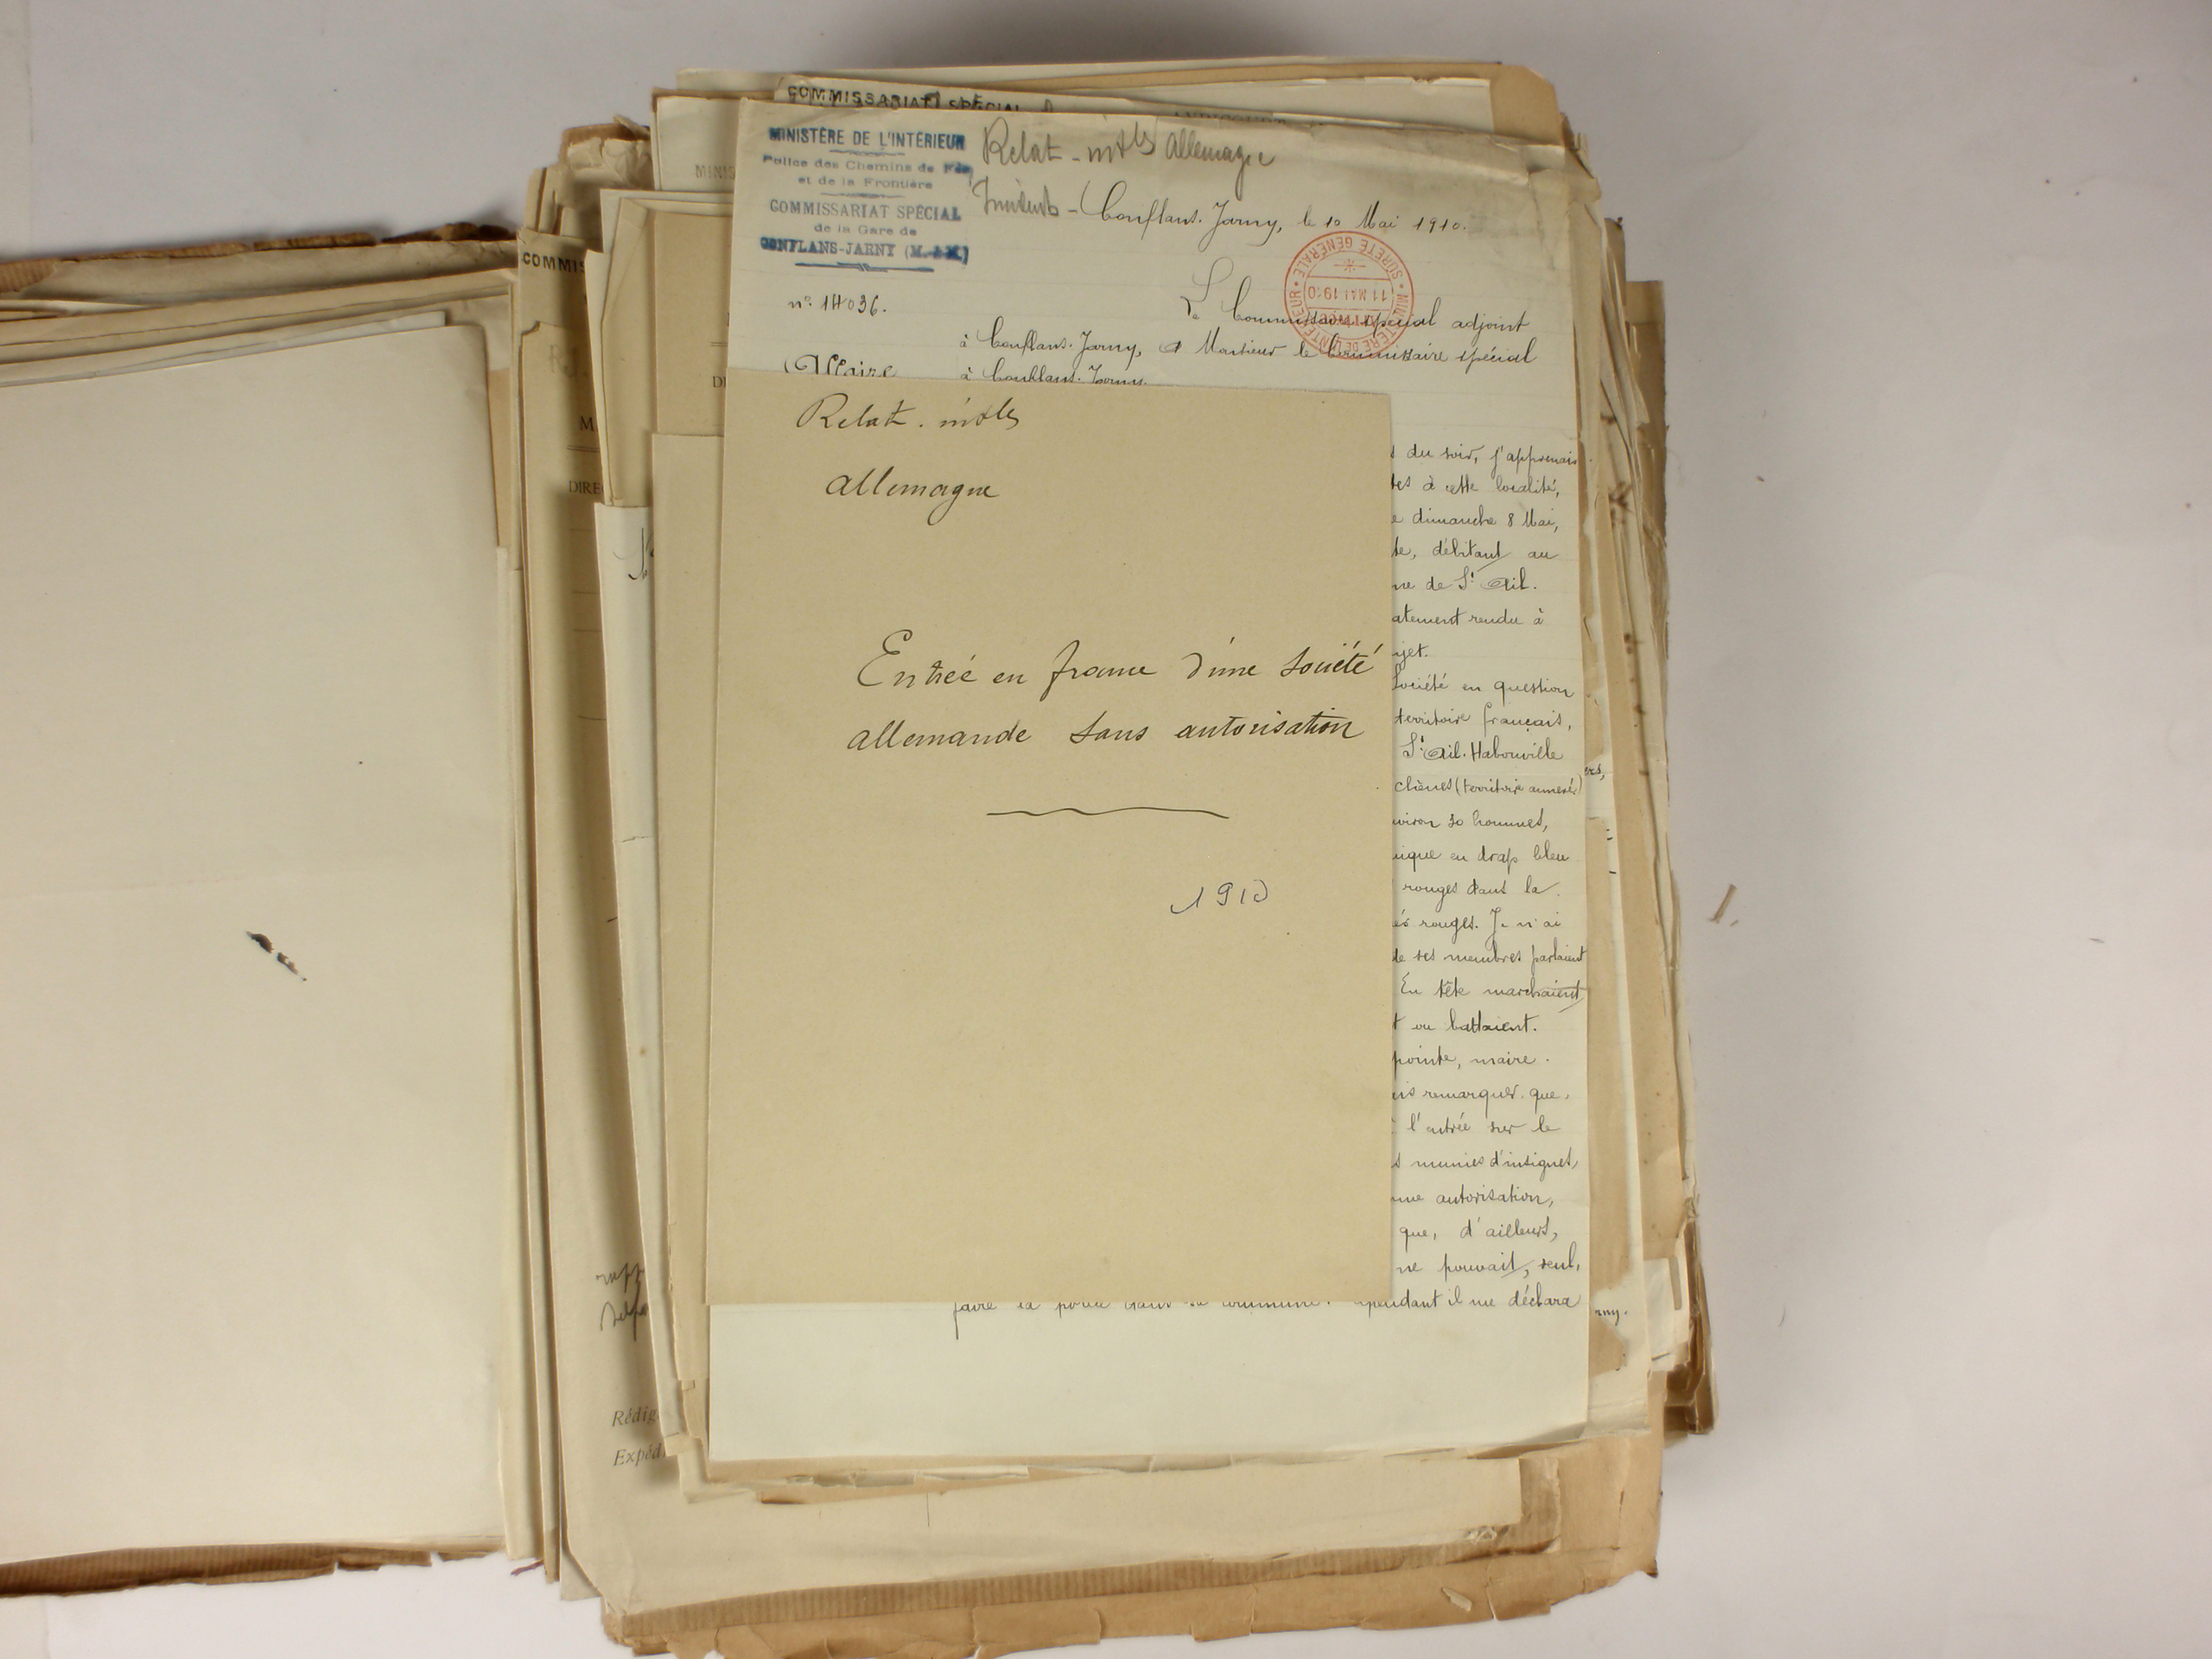 COMMISSARIAT SPÉCIAL
MINISTÈRE DE L'INTÉRIEUR
Police des Chemins de Fer
et de la Frontière
COMMISSARIAT SPÉCIAL
de la Gare de
CONFLANS-JARNY (M.-&-M.)
Relat. intles Allemagne
Incidents - Conflans. Jarny, le 10 Mai 1910.
SÛRETÉ GÉNÉRALE
11 MAI 1910
MINISTÈRE DE L'INTÉRIEUR
n° 14036.
Le Commissaire spécial adjoint
à Conflans. Jarny, à Monsieur le Commissaire spécial
à Conflans. Jarny.
Affaire
Relat. intles
Allemagne
Entrée en france d'une société
allemande sans autorisation
1910
du soir, j'apprenais
tes à cette localité,
e dimanche 8 Mai,
te, débitant au
ne de St Ail.
atement rendu à
ujet.
Société en question
territoire français,
St Ail. Habonville
chènes (territoire annexé)
viron 50 hommes,
nique en drap bleu
rouges dans la
és rouges. Je n'ai
de ses membres parlaient
En tête marchaient
t ou battaient.
pointe, maire.
is remarquer que,
l'entrée sur le
s munies d'insignes,
une autorisation,
que, d'ailleurs,
ne pouvait, seul,
faire la police dans sa commune. Cependant il me déclara
COMMIS
MINIS
DIRE
rny.
Rédig
Expéd